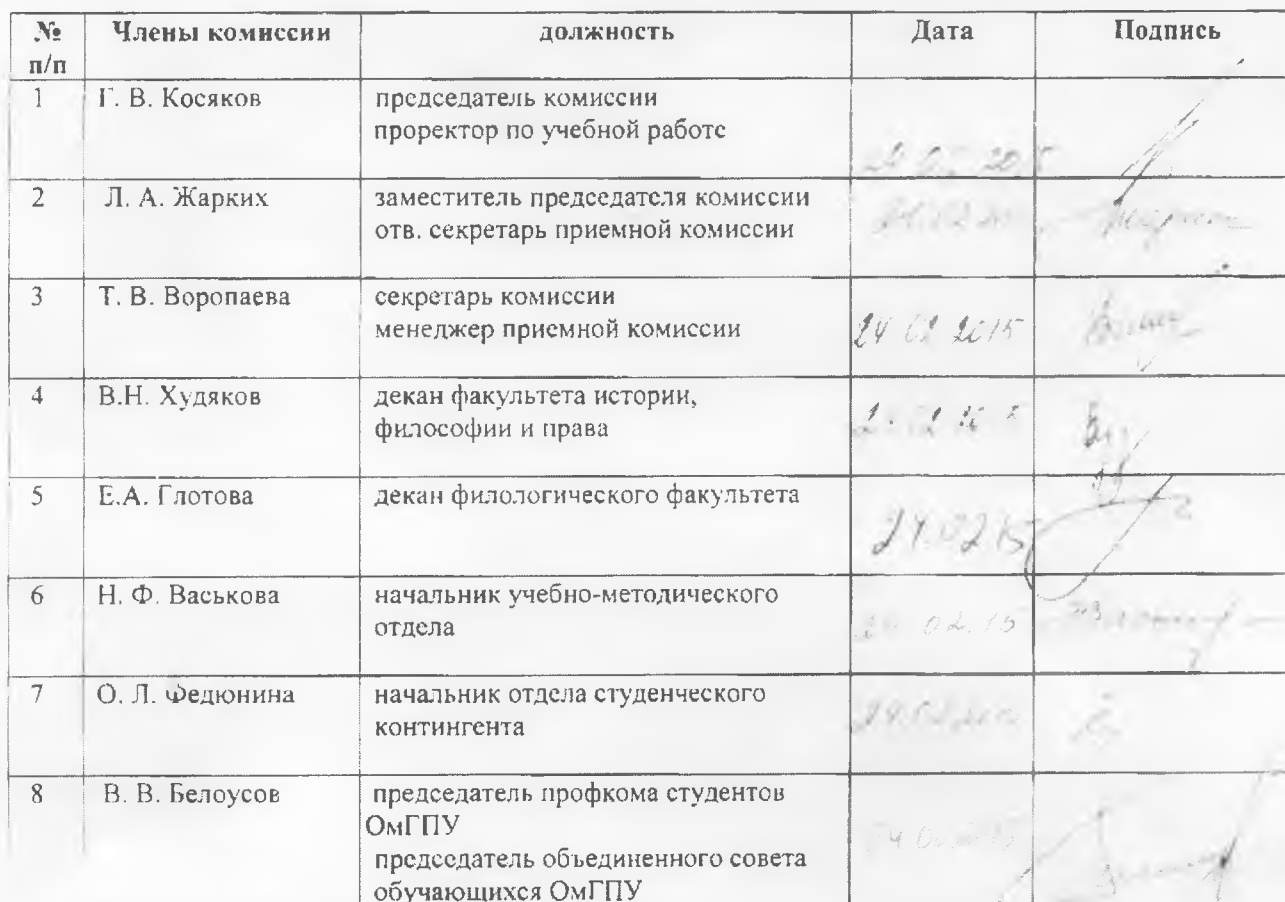 № Члены комиссии должность Дата Подпись
п/п
1 Г. В. Косяков председатель комиссии
проректор по учебной работе
2 Л. А. Жарких заместитель председателя комиссии
отв. секретарь приемной комиссии
3 Т. В. Воропаева секретарь комиссии
менеджер приемной комиссии 24 02 2015
4 В.Н. Худяков декан факультета истории,
философии и права
5 Е.А. Глотова декан филологического факультета
24.02 15
6 Н. Ф. Васькова начальник учебно-методического
отдела 24 02.15
7 О. Л. Федюнина начальник отдела студенческого
контингента
8 В. В. Белоусов председатель профкома студентов
ОмГПУ
председатель объединенного совета
обучающихся ОмГПУ